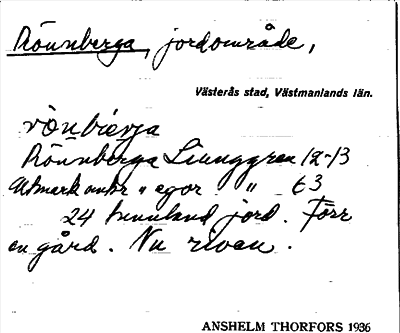 Rönnberga, jordområde,
Västerås stad, Västmanlands län.
rönbærja
Rönnberga Ljunggren 12-13
Utmark antr " egor " 63
24 tunnland jord. Förr
en gård. Nu riven.
ANSHELM THORFORS 1936